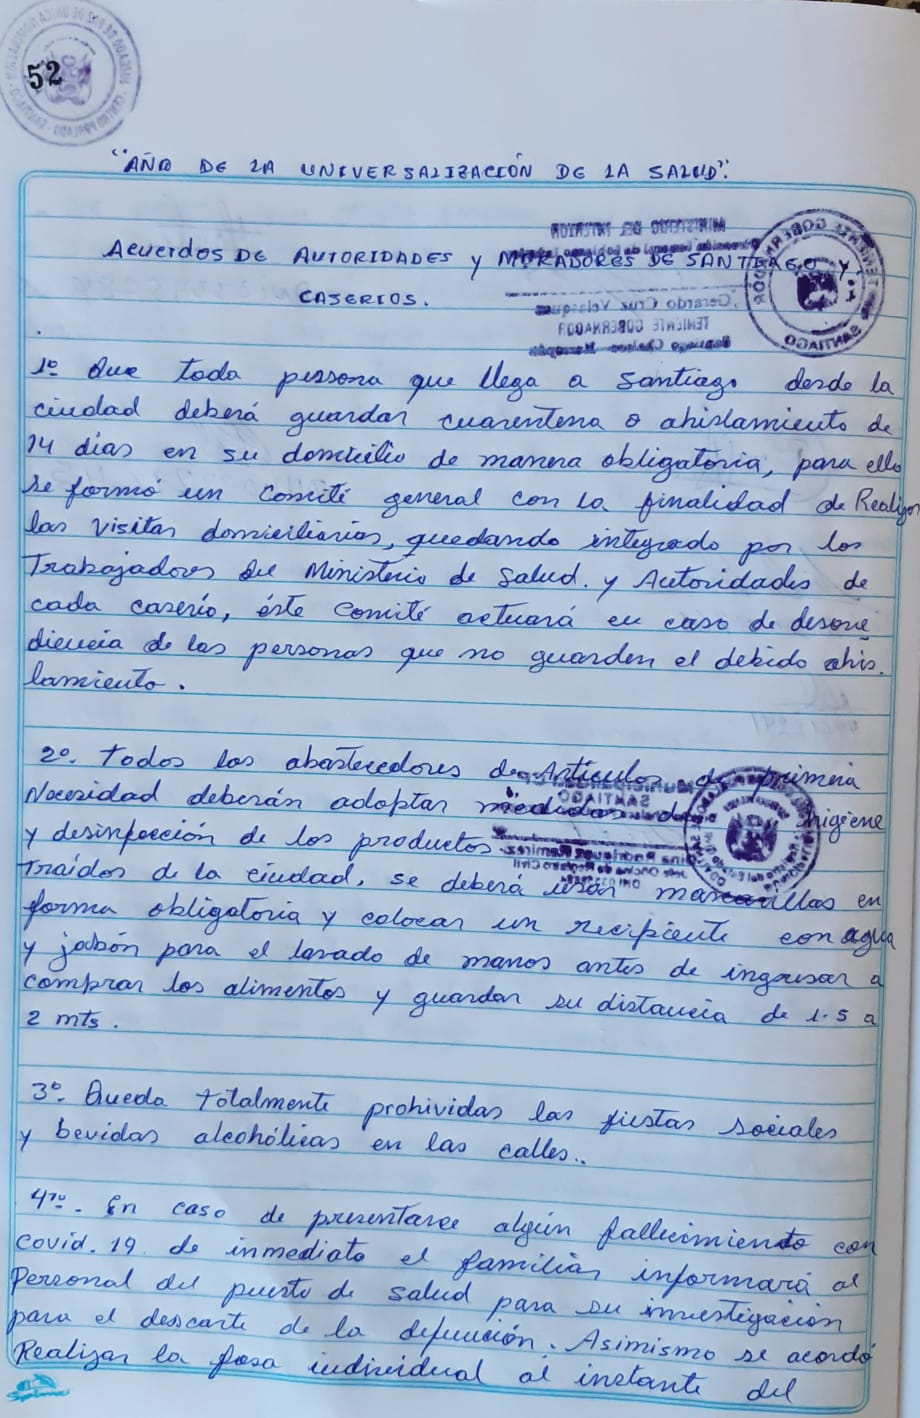 52
"AÑO DE LA UNIVERSALIZACIÓN DE LA SALUD".
Acuerdos DE AUTORIDADES y MORADORES DE SANTIAGO Y
CASERIOS.
1º Que toda persona que llega a Santiago desde la
ciudad deberá guardar cuarentena o ahislamiento de
14 días en su domicilio de manera obligatoria, para ello
se formó un Comité general con la finalidad de Realizar
las visitas domiciliarias, quedando integrado por los
Trabajadores del Ministerio de Salud. y Autoridades de
cada caserío, éste Comité actuará en caso de desove
diencia de las personas que no guarden el debido ahis.
lamiento.
2º. todos los abastecedores de Artículos de primera
Necesidad deberán adoptar medidas de higiene
y desinfección de los productos
Traídos de la ciudad, se deberá usar mascarillas en
forma obligatoria y colocar un recipiente con agua
y jabón para el lavado de manos antes de ingresar a
comprar los alimentos y guardar su distancia de 1.5 a
2 mts.
3º. Queda totalmente prohividas las fiestas sociales
y bevidas alcohólicas en las calles..
4to. En caso de presentarce algún fallecimiento con
covid. 19. de inmediato el familiar informará al
Personal del puesto de salud para su investigación
para el descarte de la defunción. Asimismo se acordó
Realizar la fosa individual al instante del